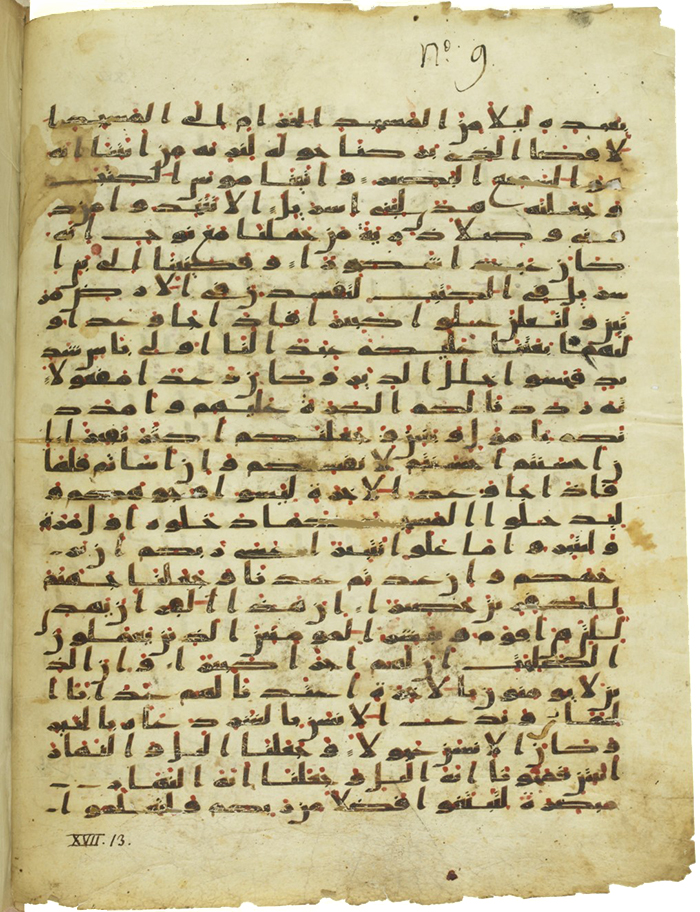 nº. 9
بعبده ليلا من المسجد الحرام الى المسجد ا
لاقصا الذى بركنا حوله لنريه من ايتنا انه
هو السميع البصير و اتينا موسى الكتب
و جعلنه هدى لبنى اسريل الا تتخذوا من د
ونى وكيلا ذرية من حملنا مع نوح انه
كان عبدا شكورا و قضينا الى بنى ا
سريل فى الكتب لتفسدن فى الارض مر
تين ولتعلن علوا كبيرا فاذا جا وعد او
ليهما بعثنا عليكم عبدا لنا اولى باس شد
يد فجسوا خلل الديار وكان وعدا مفعولا
ثم رددنا لكم الكرة عليهم و امدد
نكم باموال وبنين وجعلنكم اكثر نفيرا ا
ن احسنتم احسنتم لانفسكم وان اساتم فلها
فاذا جا وعد الاخرة ليسوا وجوهكم و
ليدخلوا المسجد كما دخلوه اول مرة
وليتبروا ما علوا تتبيرا عسى ربكم ان ير
حمكم وان عدتم عدنا وجعلنا جهنم
للكفرين حصيرا ان هذا القران يهدى
للتى هى اقوم ويبشر المومنين الذين يعملون
الصلحت ان لهم اجرا كبيرا و ان الذ
ين لا يومنون بالاخرة اعتدنا لهم عذابا ا
ليما ويدع الانسن بالشر دعاه بالخير
وكان الانسن عجولا وجعلنا اليل والنهار
ايتين فمحونا اية اليل و جعلنا اية النهار
مبصرة لتبتغوا فضلا من ربكم ولتعلموا
XVII. 13.